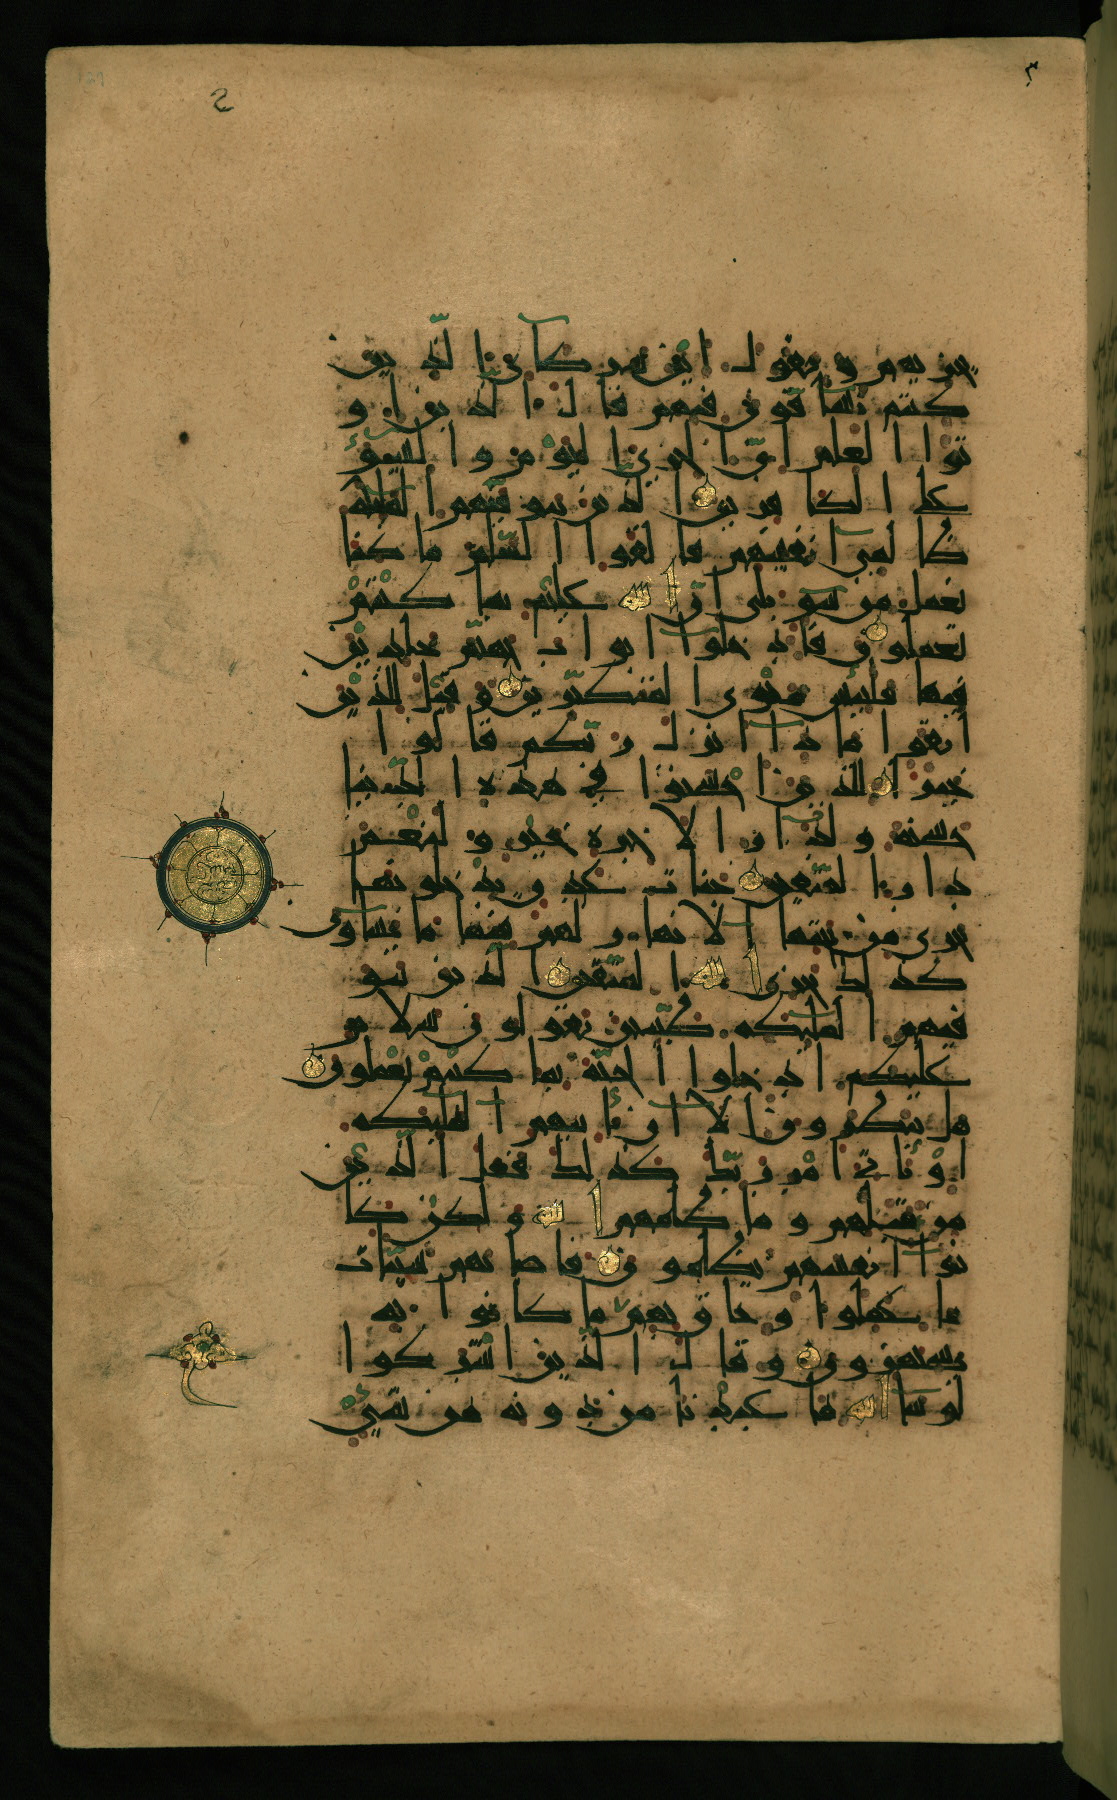 يخزيهم ويقول اين شركآءي الّذين
كنتم تشاقّون فيهم قال الذين او
توا العلم انّ الخزي اليوم والسّوء
على الكافرين الذين تتوفّيهم الملئكة
ظالمي انفسهم فالقوا السّلم ما كنّا
نعمل من سوء بلى انّ الله عليم بما كنتم
تعملون فادخلوا ابواب جهنّم خالدين
فيها فلبئس مثوى المتكبّرين وقيل للذين
اتّقوا ماذا انزل ربّكم قالوا
خيرا للذين احسنوا في هذه الدّنيا
حسنة ولدار الاخرة خير ولنعم
دار المتّقين جنات عدن يدخلونها
تجري من تحتها الانهار لهم فيها ما يشآون
كذلك يجزي الله المتّقين الّذين تتو
فيهم الملئكة طيّبين يقولون سلام
عليكم ادخلوا الجنّة بما كنتم تعملون
هل ينظرون الا ان تاتيهم الملئكة
او ياتي امر ربّك كذلك فعل الذين
من قبلهم وما ظلمهم الله ولكن كا
نوا انفسهم يظلمون فاصابهم سيّات
ما عملوا وحاق بهم ما كانوا به
يستهزون وقال الّذين اشركوا
لو شآ الله ما عبدنا من دونه من شيء